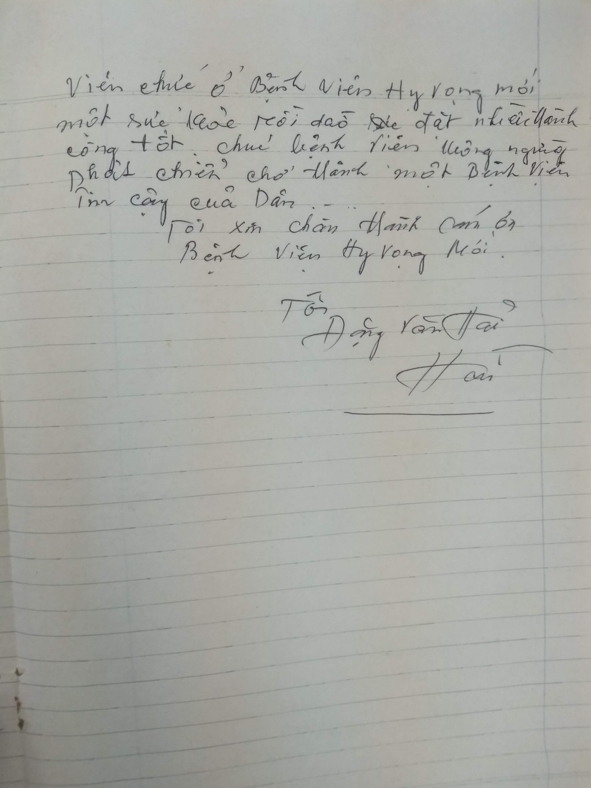 Viên chức ở Bệnh Viện Hy Vọng mới
một sức khỏe rồi dào sẽ đạt nhiều thành
công tốt. chúc bệnh viện không ngừng
phát chiển chở thành một Bệnh Viện
tin cậy của Dân...
Tôi xin chân thành cám ơn
Bệnh Viện Hy Vọng Mới.
Tôi
Đặng Văn Hải
Hải